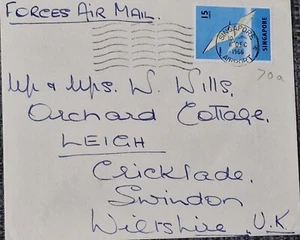 FORCES AIR MAIL.
15
SINGAPORE
DEC
1966
70a
Mr & Mrs. W. Wills.
Orchard Cottage.
LEIGH
Cricklade.
Swindon
Wiltshire, U.K